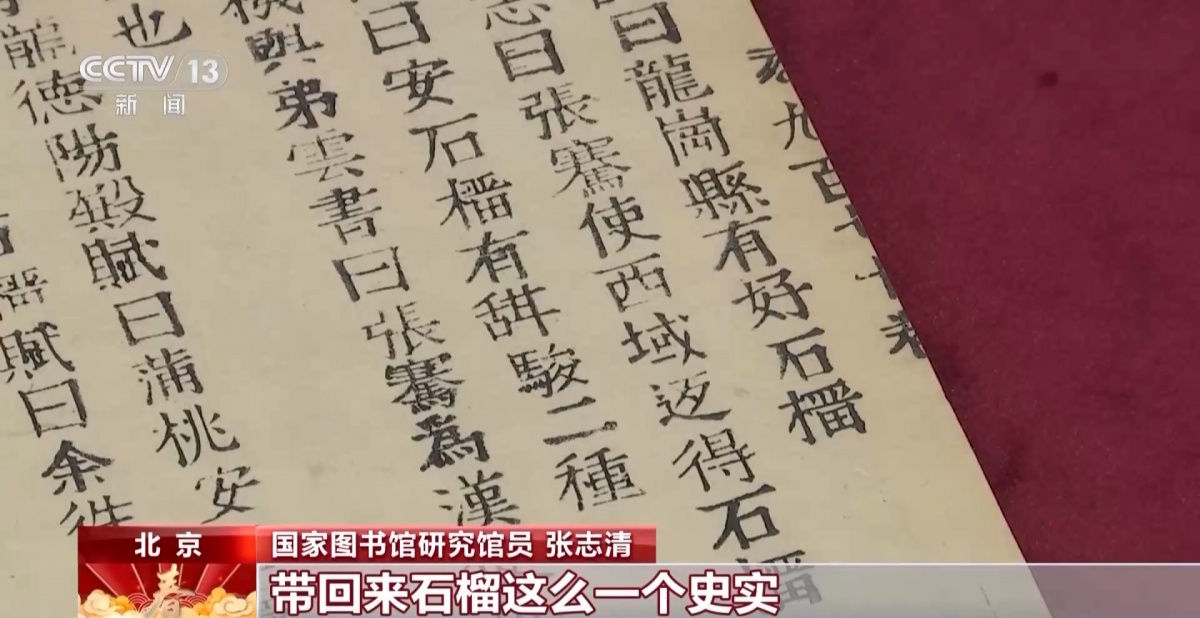 CCTV 13
新闻
九百七十
曰龍崗縣有好石橊
志曰張騫使西域返得石橊
曰安石橊有甛駿二種
機與弟雲書曰張騫為漢
也
龍德陽殿賦曰蒲桃安
橊賦曰余
北京
国家图书馆研究馆员 张志清
春
带回来石榴这么一个史实